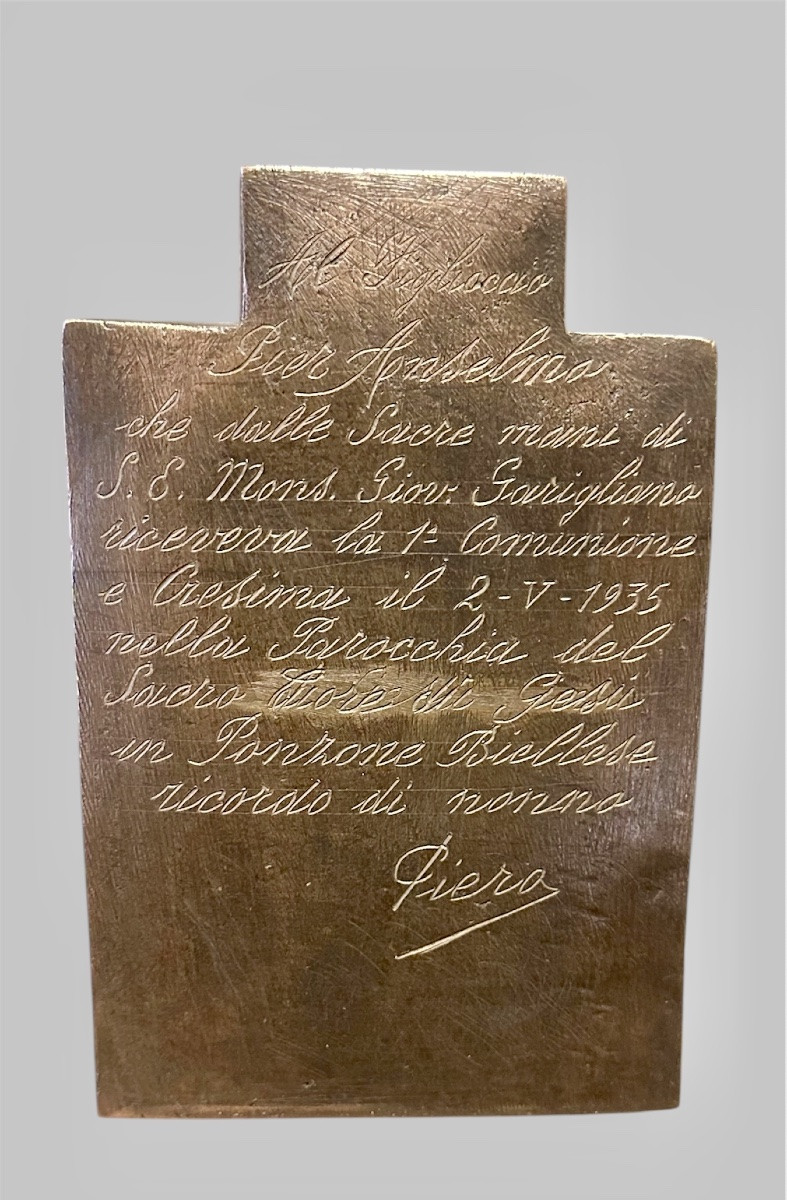 Al Figlioccio
Pier Anselmo
che dalle Sacre mani di
S. E. Mons. Giov. Garigliano
riceveva la 1ª Comunione
e Cresima il 2-V-1935
nella Parocchia del
Sacro Cuore di Gesù
in Ponzone Biellese
ricordo di nonno
Piero